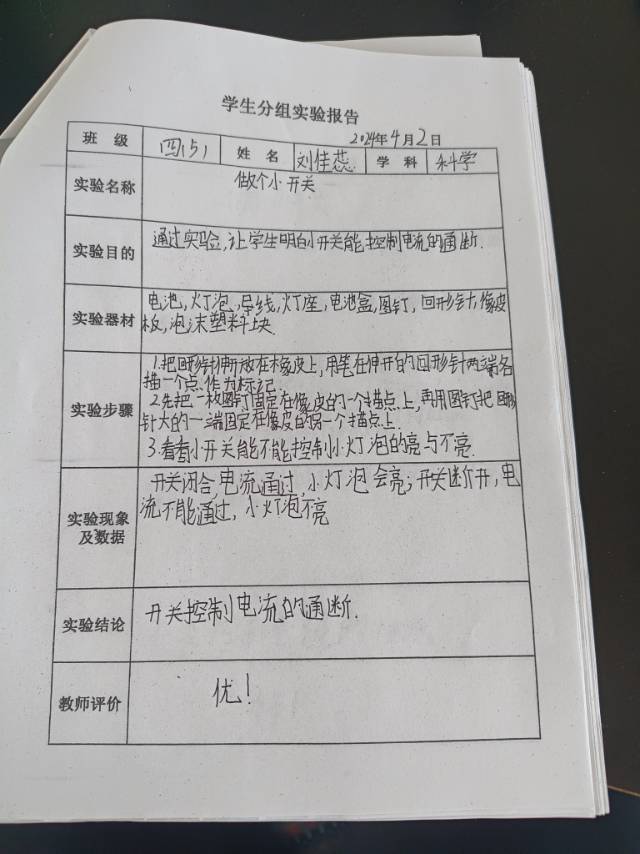 学生分组实验报告
2024年4月2日
班 级 四(5) 姓 名 刘佳蕊 学 科 科学
实验名称 做个小开关
实验目的 通过实验,让学生明白小开关能控制电流的通断.
实验器材 电池,灯泡,导线,灯座,电池盒,图钉,回形针,橡皮
板,泡沫塑料块.
实验步骤 1.把回形针伸开放在橡皮上,用笔在伸开的回形针两端各
描一个点作为标记.
2.先把一枚图钉固定在橡皮的一个描点上,再用图钉把回形
针大的一端固定在橡皮的另一个描点上.
3.看看小开关能不能控制小灯泡的亮与不亮.
实验现象 开关闭合,电流通过,小灯泡会亮;开关断开,电
及数据 流不能通过,小灯泡不亮
实验结论 开关控制电流的通断.
教师评价 优!